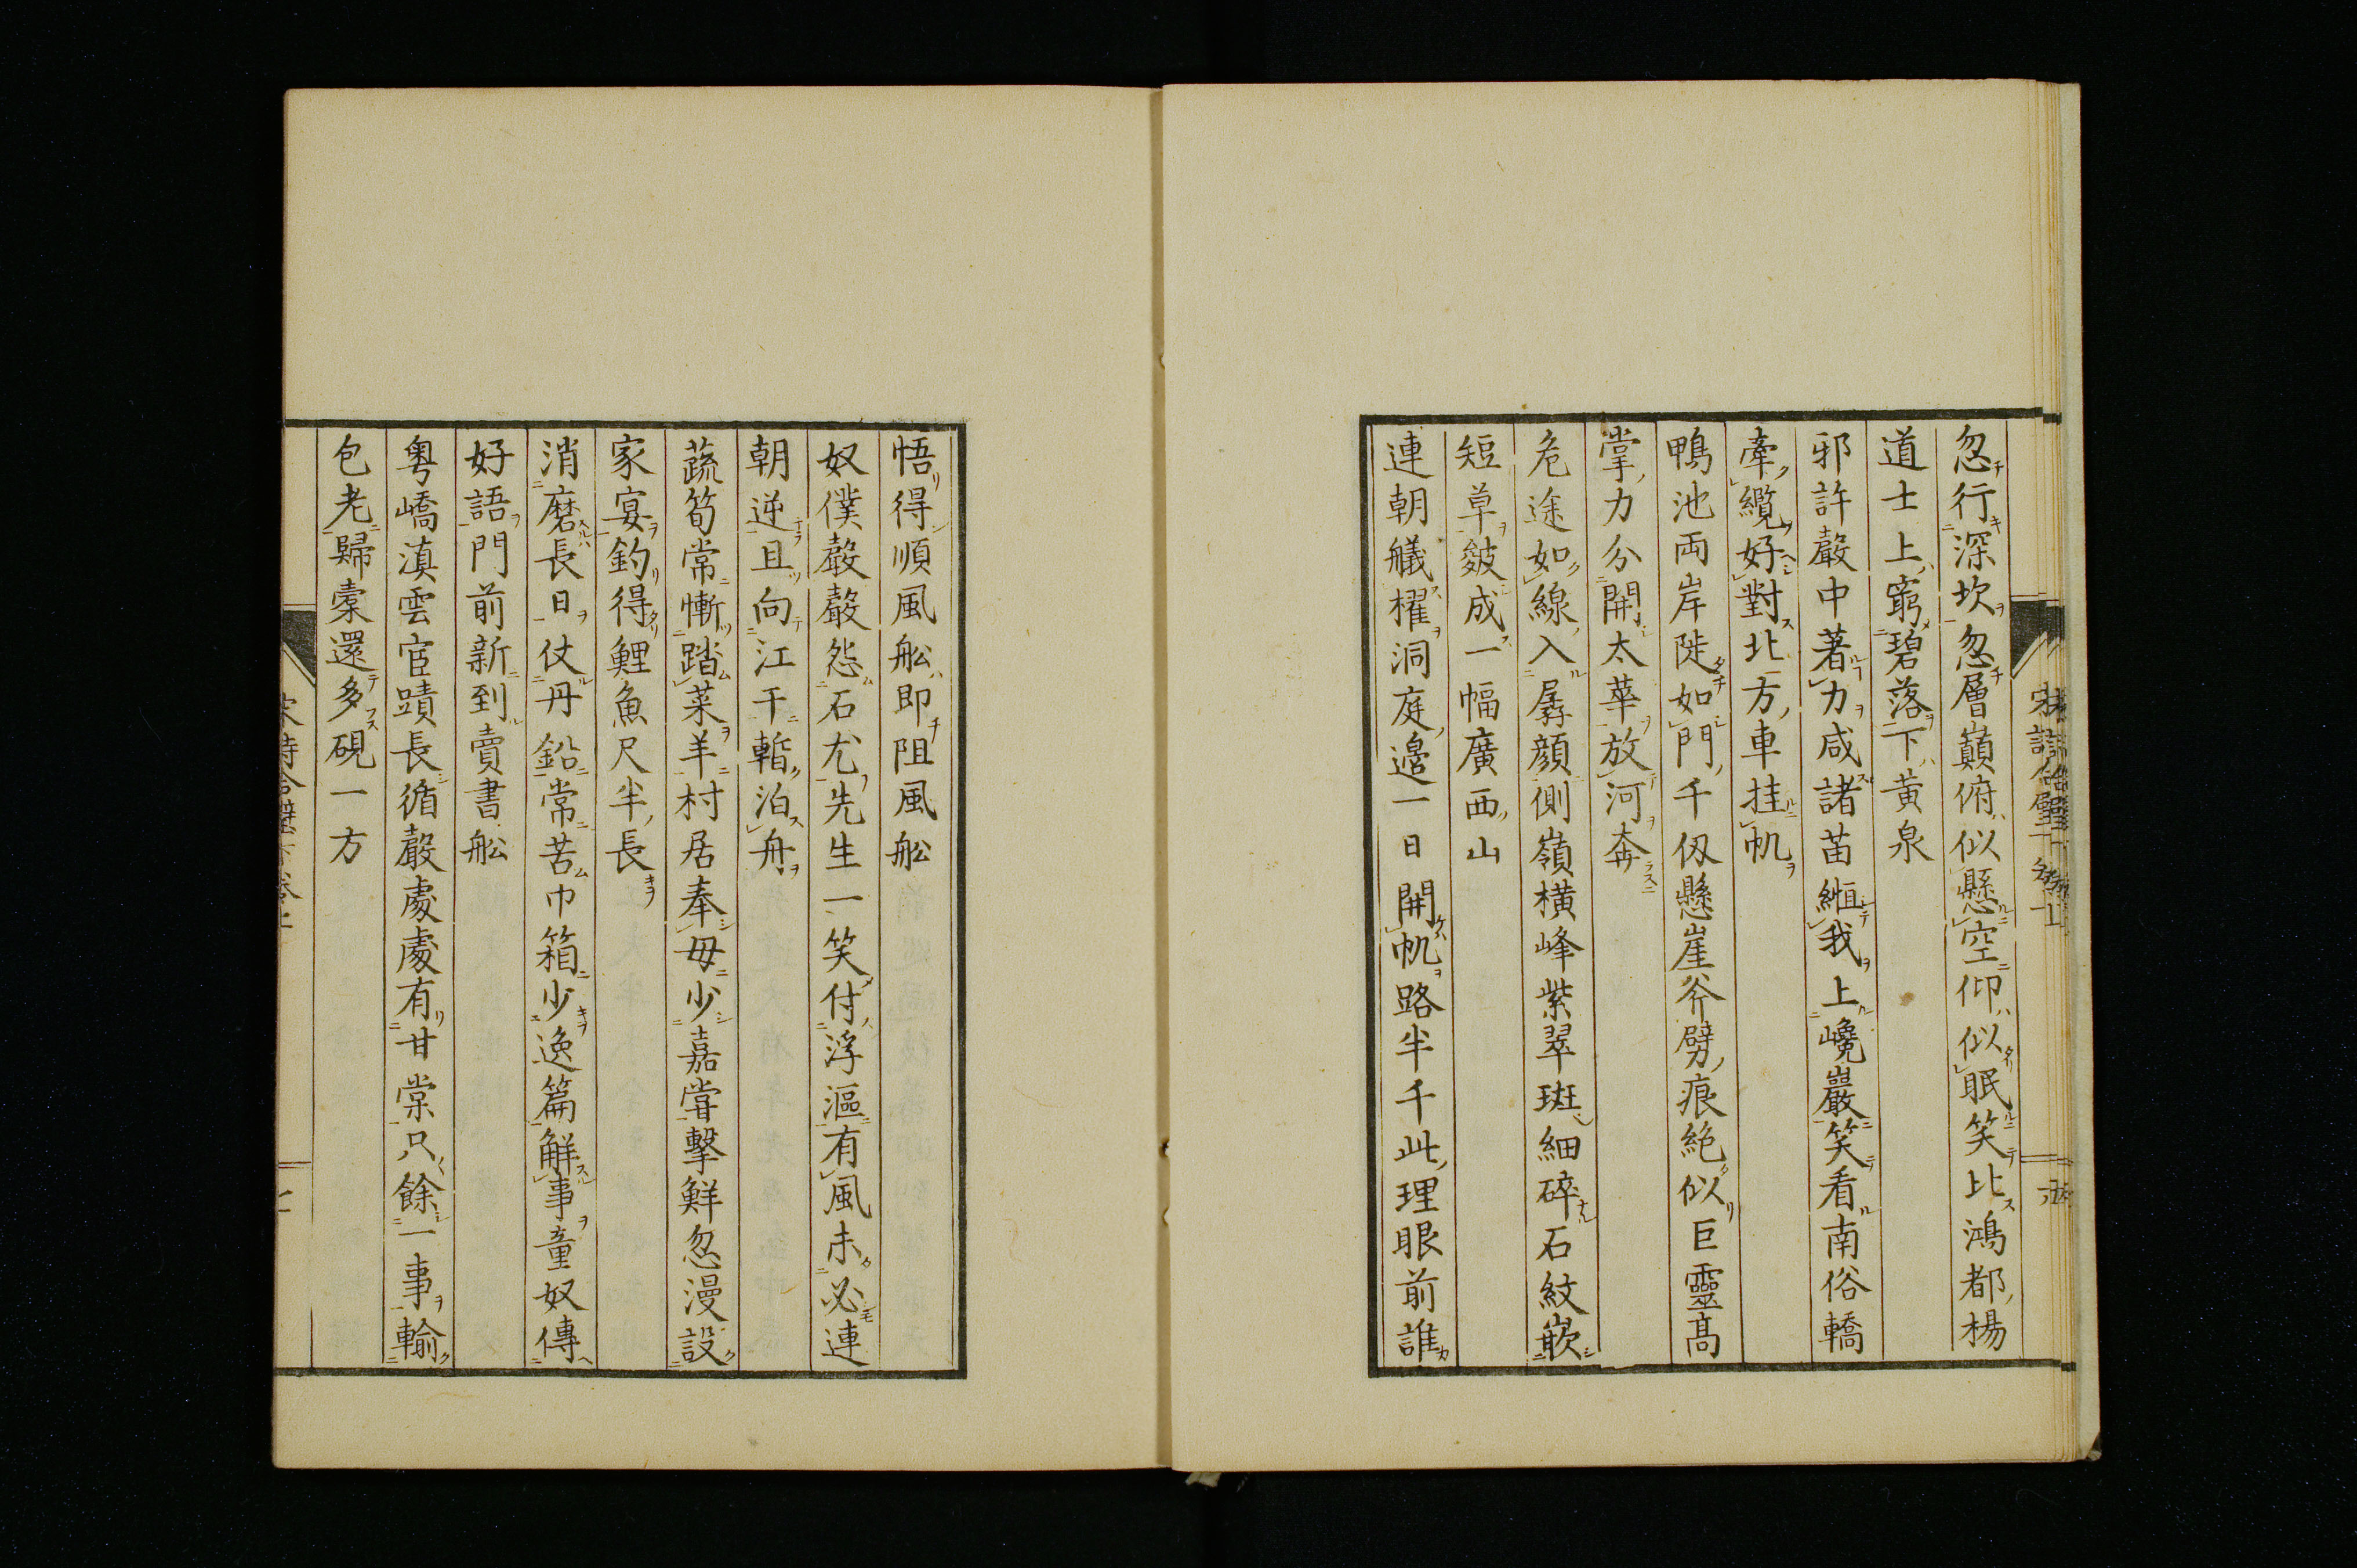 忽行深坎忽層巔俯似懸空仰似眠笑比鴻都楊
道士上窮碧落下黄泉
邪許聲中著力咸諸苗緪我上巉巖笑看南俗轎
牽纜好對北方車挂帆
鴨池両岸陡如門千仭懸崖斧劈痕絶似巨靈髙
掌力分開太華放河奔
危途如線入孱顔側嶺橫峰紫翠斑細碎石紋嵌
短草皴成一幅廣西山
連朝艤櫂洞庭邊一日開帆路半千此理眼前誰
悟得順風舩即阻風舩
奴僕聲聲怨石尤先生一笑付浮漚有風未必連
朝逆且向江干暫泊舟
蔬筍常慚踏菜羊村居奉母少嘉嘗擊鮮忽漫設
家宴釣得鯉魚尺半長
消磨長日仗丹鉛常苦巾箱少逸篇解事童奴傳
好語門前新到賣書舩
粤嶠滇雲宦蹟長循聲處處有甘棠只餘一事輸
包老歸槖還多硯一方